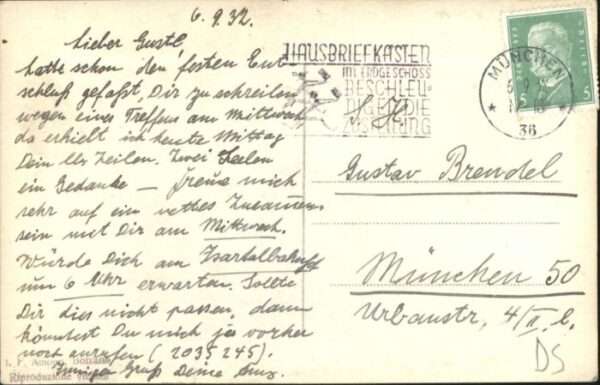 6.9.32.
Lieber Gustl,
hatte schon den festen Ent
schluß gefaßt, Dir zu schreiben
wegen eines Treffens am Mittwoch,
da erhielt ich heute Mittag
Dein lb. Zeilen. Zwei Seelen
ein Gedanke – Freue mich
sehr auf ein nettes Zusammen
sein mit Dir am Mittwoch.
Würde Dich am Isartalbahnhof
um 6 Uhr erwarten. Sollte
Dir dies nicht passen, dann
könntest Du mich ja vorher
noch anrufen (2035245).
Innigen Gruß Deine
Riproduzione vietata
HAUSBRIEFKASTEN
IM ERDGESCHOSS
BESCHLEU-
NIGEN DIE
ZUSTELLUNG
MÜNCHEN
36
5 5
S. H.
Gustav Brendel
München 50
Urbanstr. 4/II l.
DS